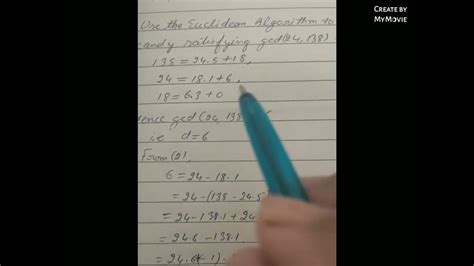 CREATE BY
MYMOVIE
Use the Euclidean Algorithm to
satisfying gcd(24, 138)
138 = 24.5+18,
24 = 18.1+6,
18 = 6.3+0
gcd (24, 138
i.e d=6
From (2),
6 = 24-18.1
= 24-(138-24.5)
= 24-138.1+24
= 24.6-138.1
= 24.6